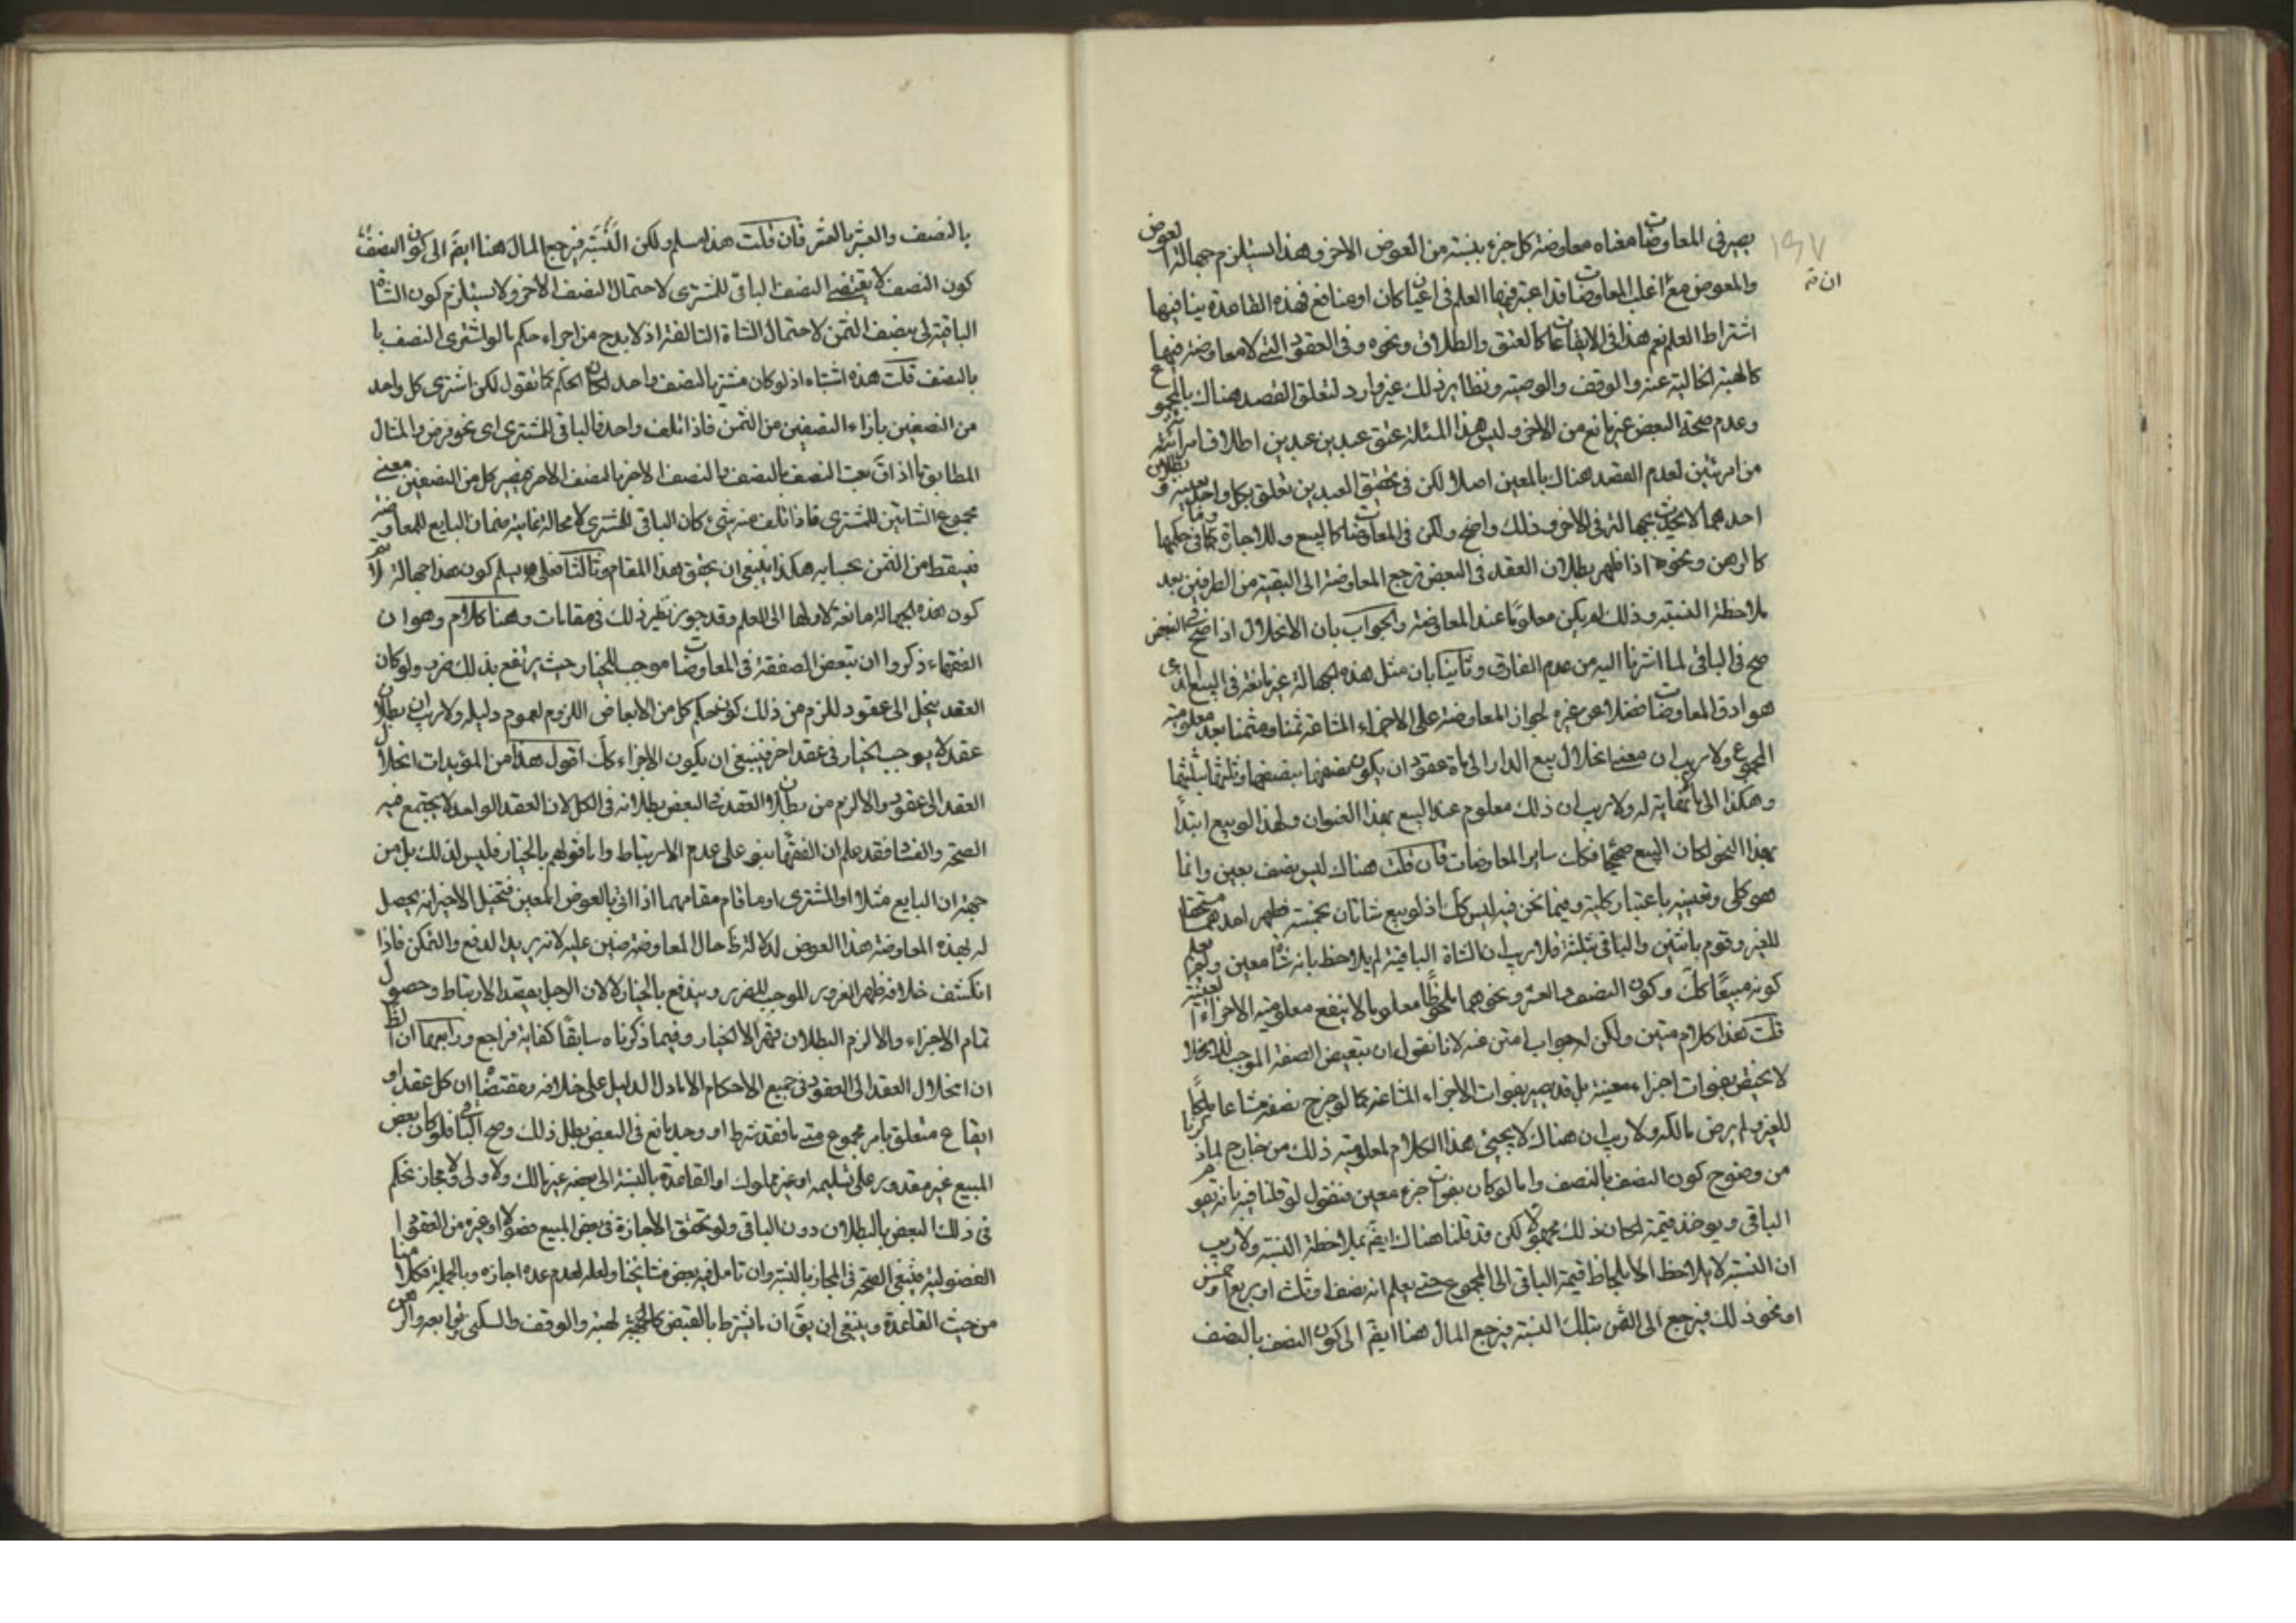 ١٩٧
ان ته
يصير في المعاوضات معناه معاوضة كل جزء بنسبته من العوض الاخر وهذا يستلزم جهالة العوض
والمعوض مع اغلب المعاوضات قد اعتبر فيها العلم في اعيان كان او منافع فهذه القاعدة ينافيها
اشتراط العلم نعم هذا في الايقاعات كالعتق والطلاق ونحوه وفي العقود التي لا معاوضة فيها
كالهبة الخالية عنه والوقف والوصية ونظاير ذلك غير وارد لتعلق القصد هناك بالمجموع
وعدم صحة البعض غير مانع من الاخر وليس هذا المسئلة عتق عبد من عبدين اطلاق امرائته
من امرئتين لعدم القصد هناك بالمعين اصلا لكن في تحقيق العبدين تعلق بكل واحد
احدهما لا يحدث جهالة في الاخر وذلك واضح ولكن في المعاوضات كالبيع والاجارة وما في حكمها
كالرهن ونحوه اذا ظهر بطلان العقد في البعض ترجع المعاوضة الى البقية من الطرفين بعد
ملاحظة النسبة وذلك لم يكن معلوما عند المعاوضة والجواب بان الانحلال اذا صح في البعض
صح في الباقي لما اشرنا اليه من عدم الفارق وثانيا بان مثل هذه الجهالة غير مانعة في البيع الذي
هو ادق المعاوضات فضلا عن غيره لجواز المعاوضة على الاجزاء المشاعة ثمنا ومثمنا بعد معلومية
المجموع ولا ريب ان معنى انحلال بيع الدار الى ماة عقود ان يكون نصفها بنصفها وثلثها بثلثها
وهكذا الى ما لا نهاية له ولا ريب ان ذلك معلوم عند البيع بهذا العنوان ولهذا لو بيع ابتداً
بهذا النحو لكان البيع صحيحا فكك ساير المعاوضات فان قلت هناك ليس نصف بعين وانما
هو كلي وتعيينه باعتبار كليته وفيما نحن فيه ليس كك اذ لو بيع شاتان بخمسة فظهر احدهما مستحقا
للغير وقوم باثنين والباقي بثلثة فلا ريب ان الشاة الباقية لم يلاحظ بانه شاة معين ولم يعلم
كونه مبيعًا كك وكون النصف والعشر ونحوهما ملحوظا معلوما لا ينفع معلومية الاجزاء المعينة
قلت هذا كلام متين ولكن له جواب امتن منه لانا نقول ان تبعيض الصفقة الموجب للانحلال
لا يختص بفوات اجزاء معينة بل قد يصير بفوات الاجزاء المشاعة كما لو خرج نصفه مشاعا ملكا
للغير ولم يرض مالكه ولا ريب ان هناك لا يجيئ هذا الكلام لمعلومية ذلك من خارج لما ذكرنا
من وضوح كون النصف بالنصف واما لو كان بفوات جزء معين فنقول لو قلنا فيه بانه يقوم
الباقي ويوخذ قيمته لكان ذلك مجهولا لكن قد قلنا هناك ايضً بملاحظة النسبة ولا ريب
ان النسبة لا يلاحظ الا بلحاظ قيمة الباقي الى المجموع حتى يعلم انه نصف او ثلث او ربع او خمس
او نحو ذلك فيرجع الى الثمن بتلك النسبة فيرجع المال هنا ايضً الى كون النصف بالنصف
بالنصف والعشر بالعشر فان قلت هذا مسلم ولكن النسبة فيرجع المال هنا ايضً الى كون النصف
كون النصف لا يقتضي النصف الباقي للمشتري لاحتمال النصف الاخر ولا يستلزم كون الشاة
الباقية له بنصف الثمن لاحتمال الشاة التالفة اذ لا بد ح من اجراء حكم ما لو اشترى النصف با
بالنصف قلت هذه اشتباه اذ لو كان مشتر بالنصف واحد لكان الحكم كما تقول لكن اشترى كل واحد
من النصفين بازاء النصفين من الثمن فاذا تلف واحد فالباقي للمشتري اي نحو فرض والمثال
المطابق ما اذا قَ بعت النصف بالنصف والنصف الاخر بالنصف الاخر فيصير كل من النصفين معنى
مجموع الشاتين للمشتري فاذا تلف منه شيئ كان الباقي للمشتري لا محالة غايته ضمان البايع للمعاوضة
فيسقط من الثمن بحسابه هكذا ينبغي ان يحقق هذا المقام وثالثا فعلى تسليم كون هذا جهالة لا نم
كون هذه الجهالة مانعة لاولها الى العلم وقد جوز نظير ذلك في مقامات وهنا كلام وهو ان
الفقهاء ذكروا ان تبعض الصفقة في المعاوضات موجب للخيار حيث يرتفع بذلك ضرر ولو كان
العقد ينحل الى عقود للزم من ذلك كون حكم كل من الابعاض اللزوم لعموم دليله ولا ريب ان بطلان
عقد لا يوجب الخيار في عقد اخر فينبغي ان يكون الاجزاء كك اقول هذا من المؤيدات انحلال
العقد الى عقود والا لزم من بطلان العقد في البعض بطلانه في الكل لان العقد الواحد لا يجتمع فيه
الصحة والفساد فقد علم ان الفقهاء بنو على عدم الارتباط واما قولهم بالخيار فليس لذلك بل من
جهة ان البايع مثلا او المشتري او ما قام مقامهما اذا اتى بالعوض المعين فتخيل الاخر انه يحصل
له بهذه المعاوضة هذا العوض لدلالة ظَ حال المعاوضة عليه لانه يريد الدفع والتمكن فاذا
انكشف خلافه ظهر الغرور الموجب للضرر ويندفع بالخيار لا لان الرجل يقصد الارتباط وحصول
تمام الاجزاء والا لزم البطلان قهرا لا الخيار وفيما ذكرناه سابقًا كفاية فراجع ورابعها ان الظَ
ان انحلال العقد الى العقود في جميع الاحكام الا ما دل الدليل على خلافه ومقتضاه ان كل عقد او
ايقاع متعلق بامر مجموع متى ما فقد شرط او وجد مانع في البعض بطل ذلك وصح الباقي فلو كان بعض
المبيع غير مقدور على تسليمه او غير مملوك او القاعدة بالنسبة الى بعضه غير مالك ولا ولى ولا مجاز نحكم
في ذلك البعض بالبطلان دون الباقي ولو تحقق الاجازة في بعض المبيع فضولا او غيره من العقود
الفضولية فينبغي الصحة في المجاز بالنسبة وان تامل فيه بعض مشايخنا ولعله لعدم عده اجازه وبالجملة فكلامنا
من حيث القاعدة وينبغي ان يقَ ان ما يشترط بالقبض كالهبة والوقف والسكنى وتوابعه والرهن